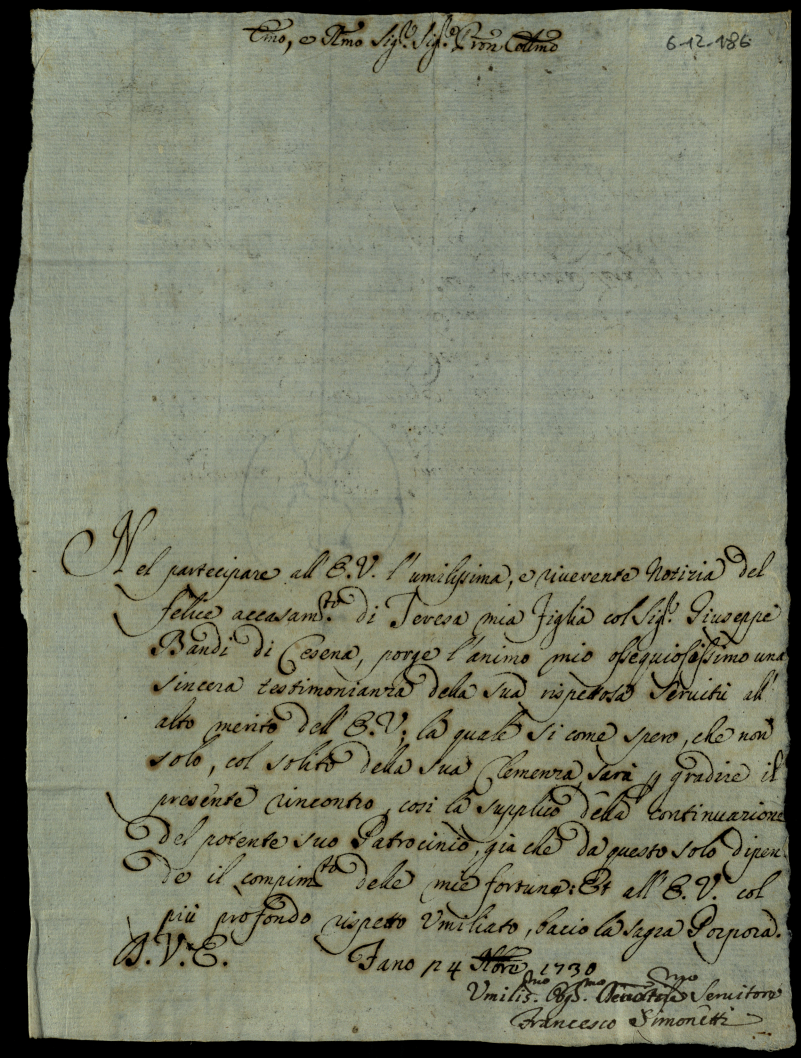 Emo, e Rmo Sigr. Sigr. Pron Collmo
6-12-186
Nel partecipare all'E.V. l'umilissima, e riverente Notizia del
felice accasamto. di Teresa mia Figlia col Sigr. Giuseppe
Bandi di Cesena, porge l'animo mio ossequiosissimo una
sincera testimonianza della sua rispettosa Servitù all'
alto merito dell'E.V; la quale si come spero, che non
solo, col solito della sua Clemenza, sarà p gradire il
presente rincontro, così la supplico della continuazione
del potente suo Patrocinio, già che da questo solo dipen
de il compimto delle mie fortune: Et all'E.V. col
più profondo rispetto Umiliato, bacio la sagra Porpora.
D.V.E. Fano p 4 1730
Umiliss.mo Servitore
Francesco Simonetti